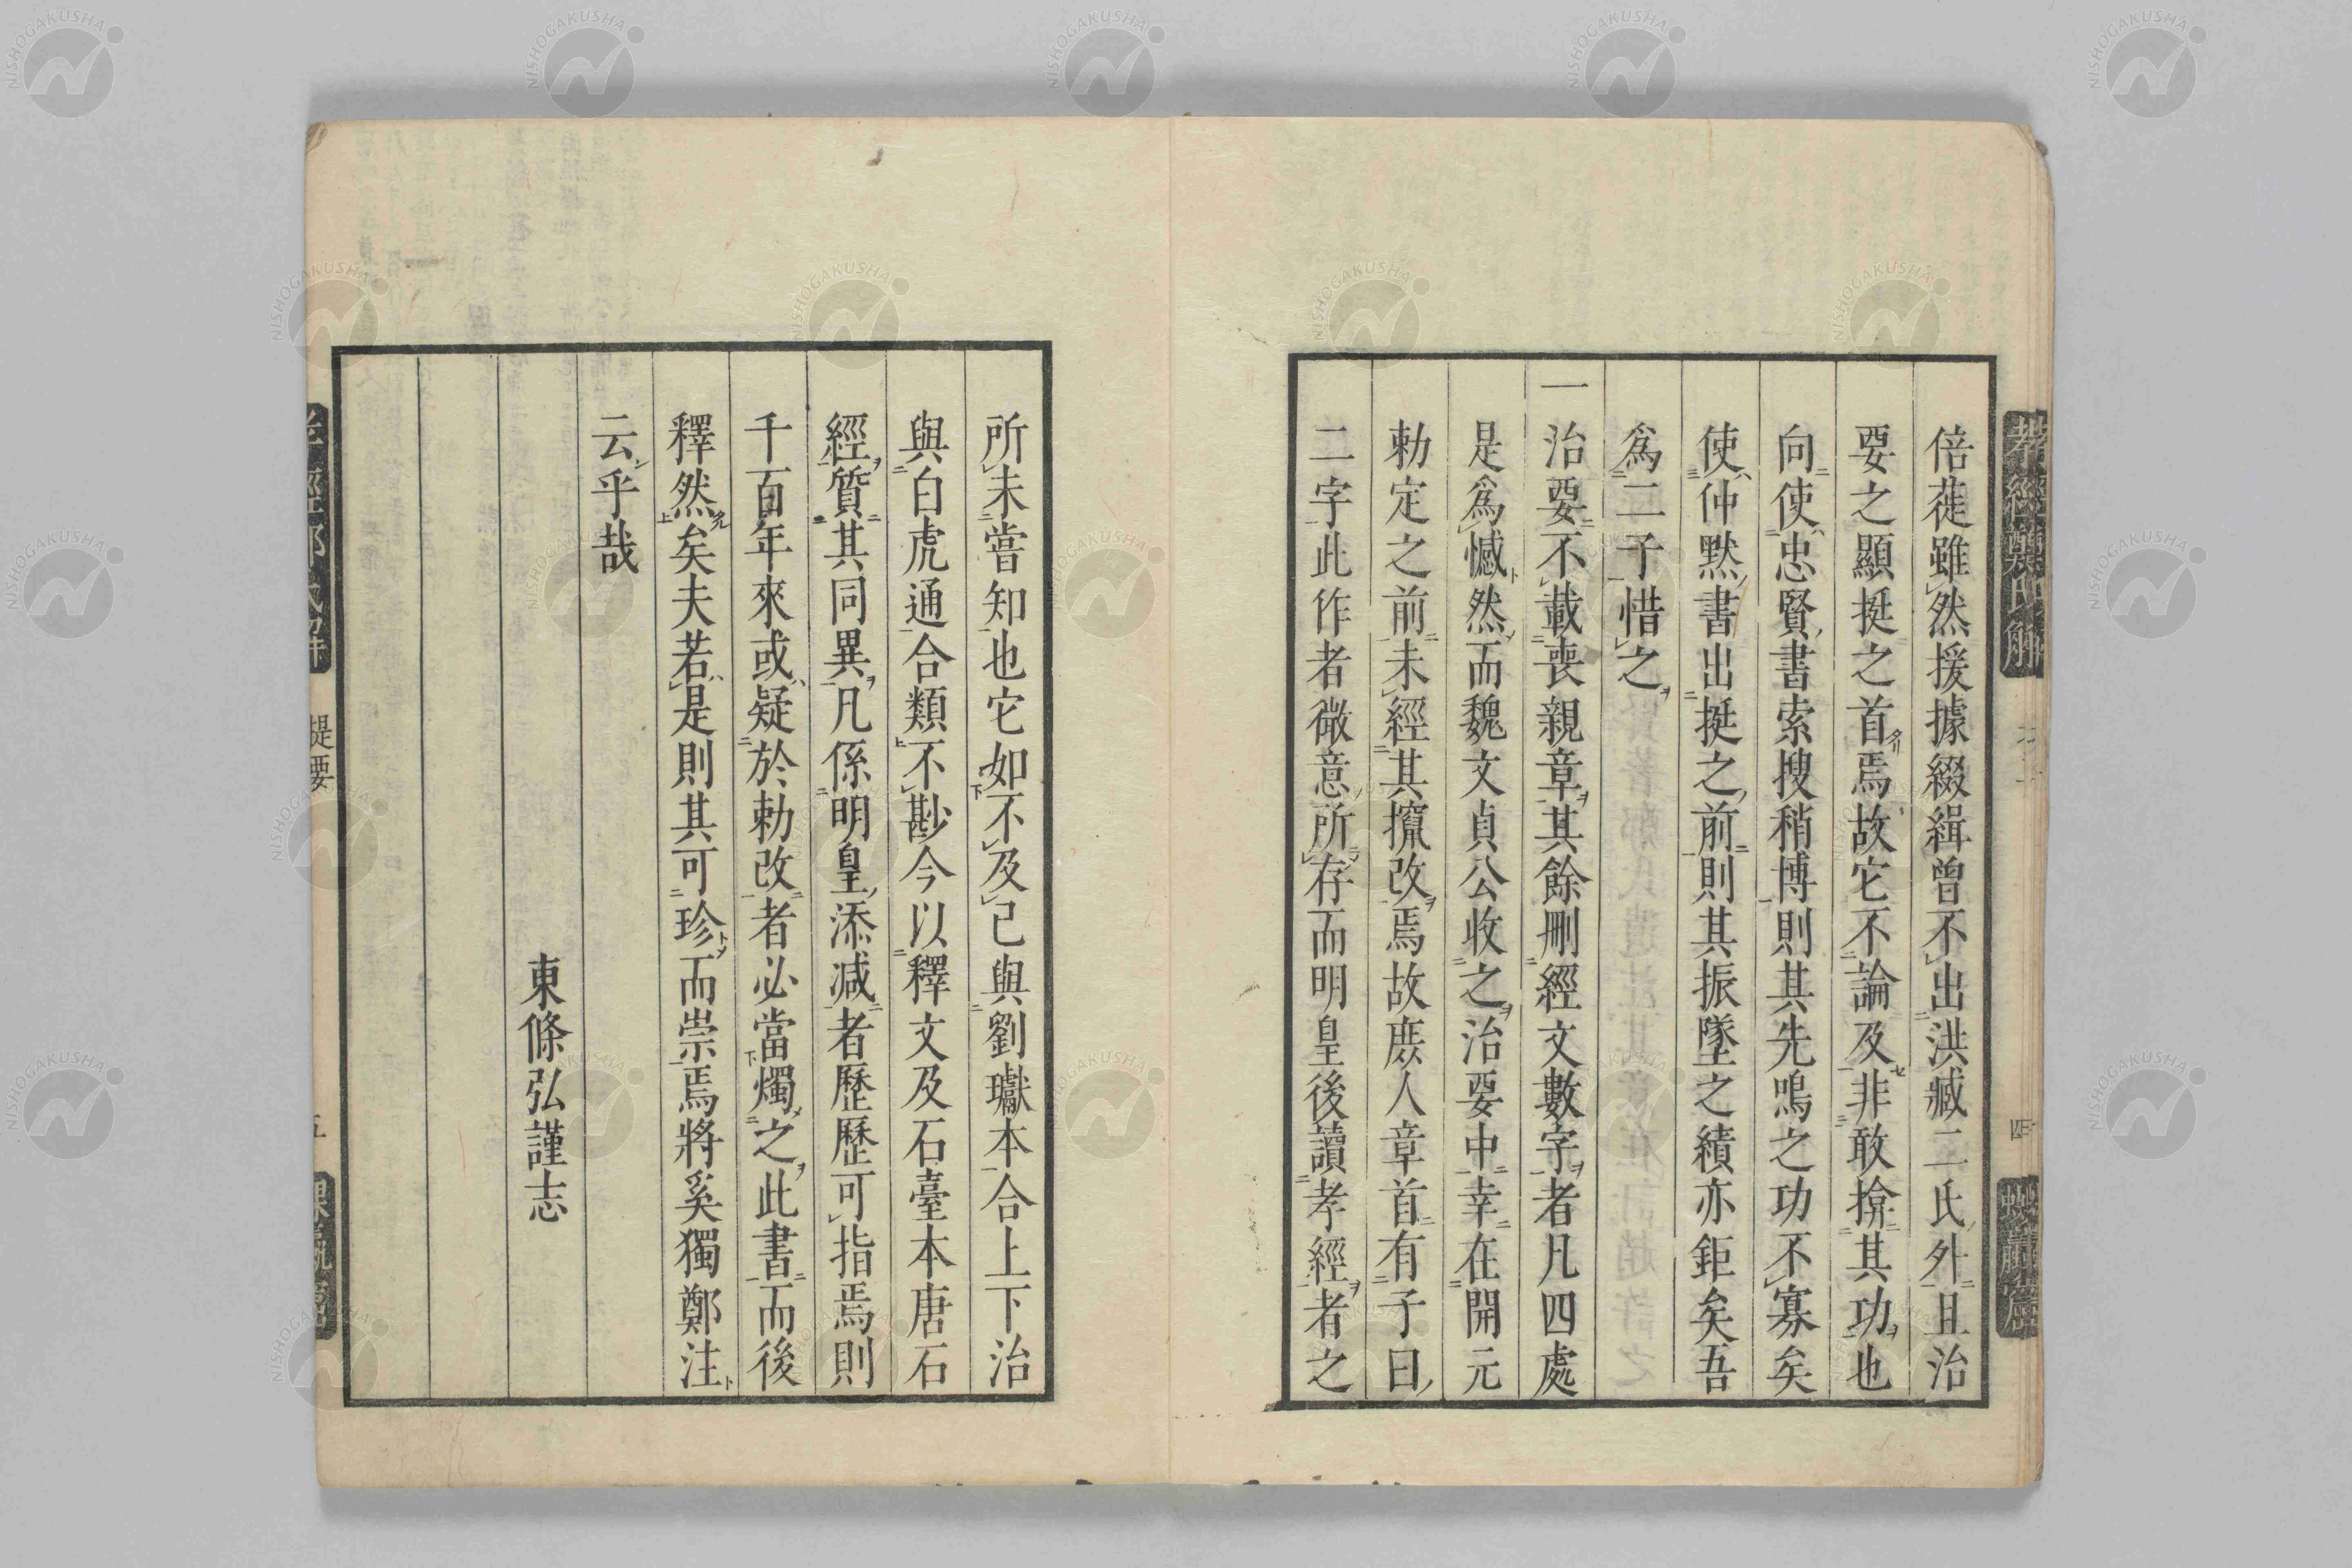 倍蓰雖然援據綴緝曾不出洪臧二氏外且治
要之顯挺之首焉故它不論及非敢揜其功也
向使忠賢書索搜稍博則其先鳴之功不寡矣
使仲黙書出挺之前則其振墜之績亦鉅矣吾
爲二子惜之
一治要不載喪親章其餘刪經文數字者凡四處
是爲憾然而魏文貞公收之治要中幸在開元
勅定之前未經其攛改焉故庶人章首有子曰
二字此作者微意所存而明皇後讀孝經者之
所未嘗知也它如不及已與劉瓛本合上下治
與白虎通合類不尠今以釋文及石臺本唐石
經質其同異凡係明皇添減者歷歷可指焉則
千百年來或疑於勅改者必當燭之此書而後
釋然矣夫若是則其可珍而崇焉將奚獨鄭注
云乎哉
東條弘謹志
提要
五
四
NISHOGAKUSHA